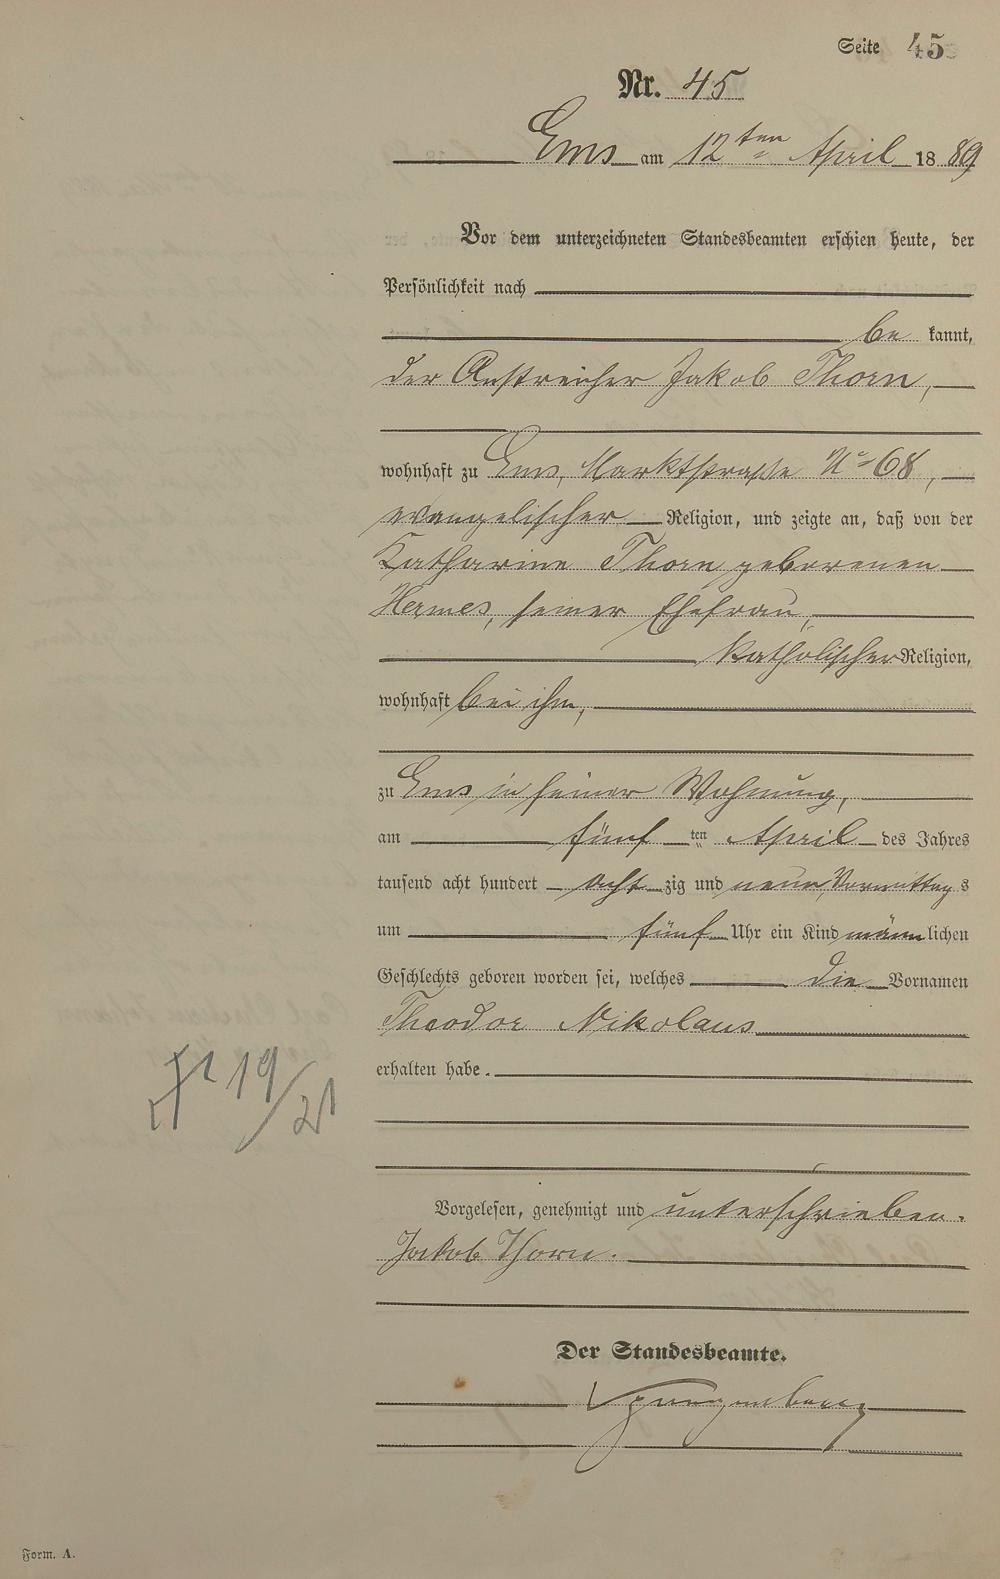 Seite 45
Nr. 45
Ems am 12ten April 1889
Vor dem unterzeichneten Standesbeamten erschien heute, der
Persönlichkeit nach
be kannt,
der Anstreicher Jakob Thorn,
wohnhaft zu Ems, Marktstrasse No 68,
evangelischer Religion, und zeigte an, daß von der
Katharine Thorn geborenen
Hermes, seiner Ehefrau,
katholischer Religion,
wohnhaft bei ihm,
zu Ems in seiner Wohnung,
am fünf ten April des Jahres
tausend acht hundert acht zig und neun, Vormittag s
um fünf Uhr ein Kind männlichen
Geschlechts geboren worden sei, welches die Vornamen
Theodor Nikolaus
erhalten habe.
19/21
Vorgelesen, genehmigt und unterschrieben.
Jakob Thorn.
Der Standesbeamte.
Form. A.